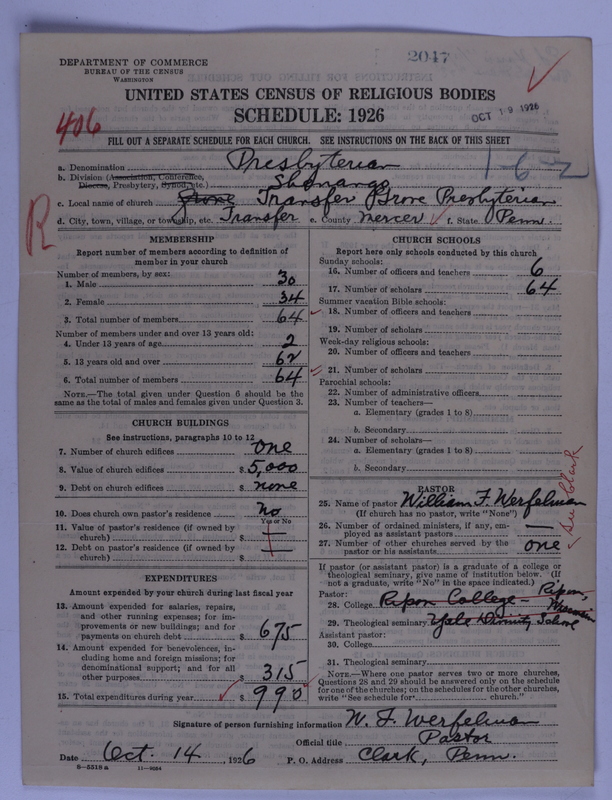 2047
DEPARTMENT OF COMMERCE
BUREAU OF THE CENSUS
WASHINGTON
UNITED STATES CENSUS OF RELIGIOUS BODIES
SCHEDULE: 1926
OCT 19 1926
406
FILL OUT A SEPARATE SCHEDULE FOR EACH CHURCH. SEE INSTRUCTIONS ON THE BACK OF THIS SHEET
1-6-2
a. Denomination Presbyterian
b. Division (Association, Conference, Diocese, Presbytery, Synod, etc.) Shenango
c. Local name of church Grove Transfer Grove Presbyterian
d. City, town, village, or township, etc. Transfer e. County Mercer f. State Penn.
R
MEMBERSHIP
Report number of members according to definition of
member in your church
Number of members, by sex:
1. Male 30
2. Female 34
3. Total number of members 64
Number of members under and over 13 years old:
4. Under 13 years of age 2
5. 13 years old and over 62
6. Total number of members 64
NOTE.—The total given under Question 6 should be
same as the total of males and females given under Question 3.
CHURCH BUILDINGS
See instructions, paragraphs 10 to 12
7. Number of church edifices one
8. Value of church edifices $ 5,000
9. Debt on church edifices $ none
10. Does church own pastor's residence? no
Yes or No
11. Value of pastor's residence (if owned by
church) $ —
12. Debt on pastor's residence (if owned by
church) $ —
EXPENDITURES
Amount expended by your church during last fiscal year
13. Amount expended for salaries, repairs,
and other running expenses; for im-
provements or new buildings; and for
payments on church debt $ 675
14. Amount expended for benevolences, in-
cluding home and foreign missions; for
denominational support; and for all
other purposes $ 315
15. Total expenditures during year $ 990
CHURCH SCHOOLS
Report here only schools conducted by this church
Sunday schools:
16. Number of officers and teachers 6
17. Number of scholars 64
Summer vacation Bible schools:
18. Number of officers and teachers
19. Number of scholars
Week-day religious schools:
20. Number of officers and teachers
21. Number of scholars
Parochial schools:
22. Number of administrative officers
23. Number of teachers—
a. Elementary (grades 1 to 8)
b. Secondary
24. Number of scholars—
a. Elementary (grades 1 to 8)
b. Secondary
See Clark
PASTOR
25. Name of pastor William F. Werfelman
(If church has no pastor, write "None")
26. Number of ordained ministers, if any, em-
ployed as assistant pastors —
27. Number of other churches served by the
pastor or his assistants one
If pastor (or assistant pastor) is a graduate of a college or
theological seminary, give name of institution below. (If
not a graduate, write "No" in the space indicated.)
Pastor:
28. College Ripon College - Ripon, Wisconsin
29. Theological seminary Yale Divinity School
Assistant pastor:
30. College
31. Theological seminary
NOTE.—Where one pastor serves two or more churches,
Questions 28 and 29 should be answered only on the schedule
for one of the churches; on the schedules for the other churches,
write "See schedule for church."
Signature of person furnishing information W. F. Werfelman
Official title Pastor
Date Oct. 14, 1926 P. O. Address Clark, Penn.
8—5518 a 11—9064